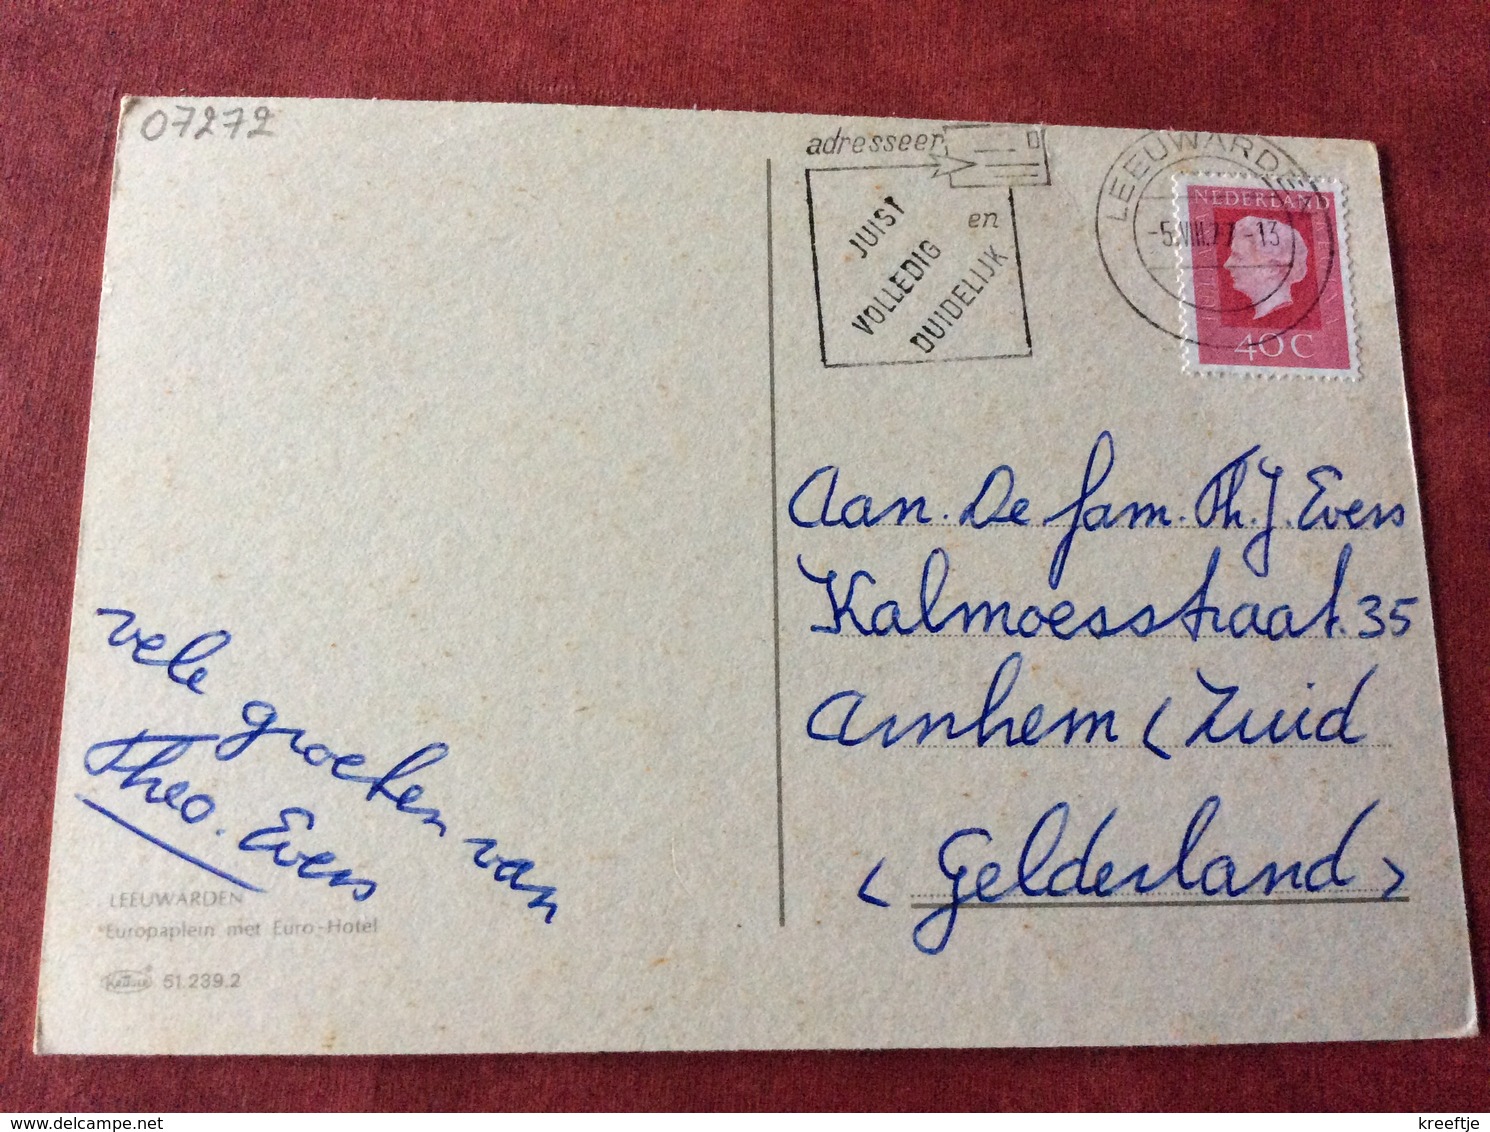 07272
adresseer
JUIST
en
VOLLEDIG
DUIDELIJK
LEEUWARDEN
-5.VIII.77-13
NEDERLAND
40C
Aan. De fam. Th. J. Evers
Kalmoesstraat. 35
Arnhem ( Zuid
< Gelderland >
vele groeten van
Theo. Evers
LEEUWARDEN
Europaplein met Euro-Hotel
51.239.2
www.delcampe.net
kreeftje